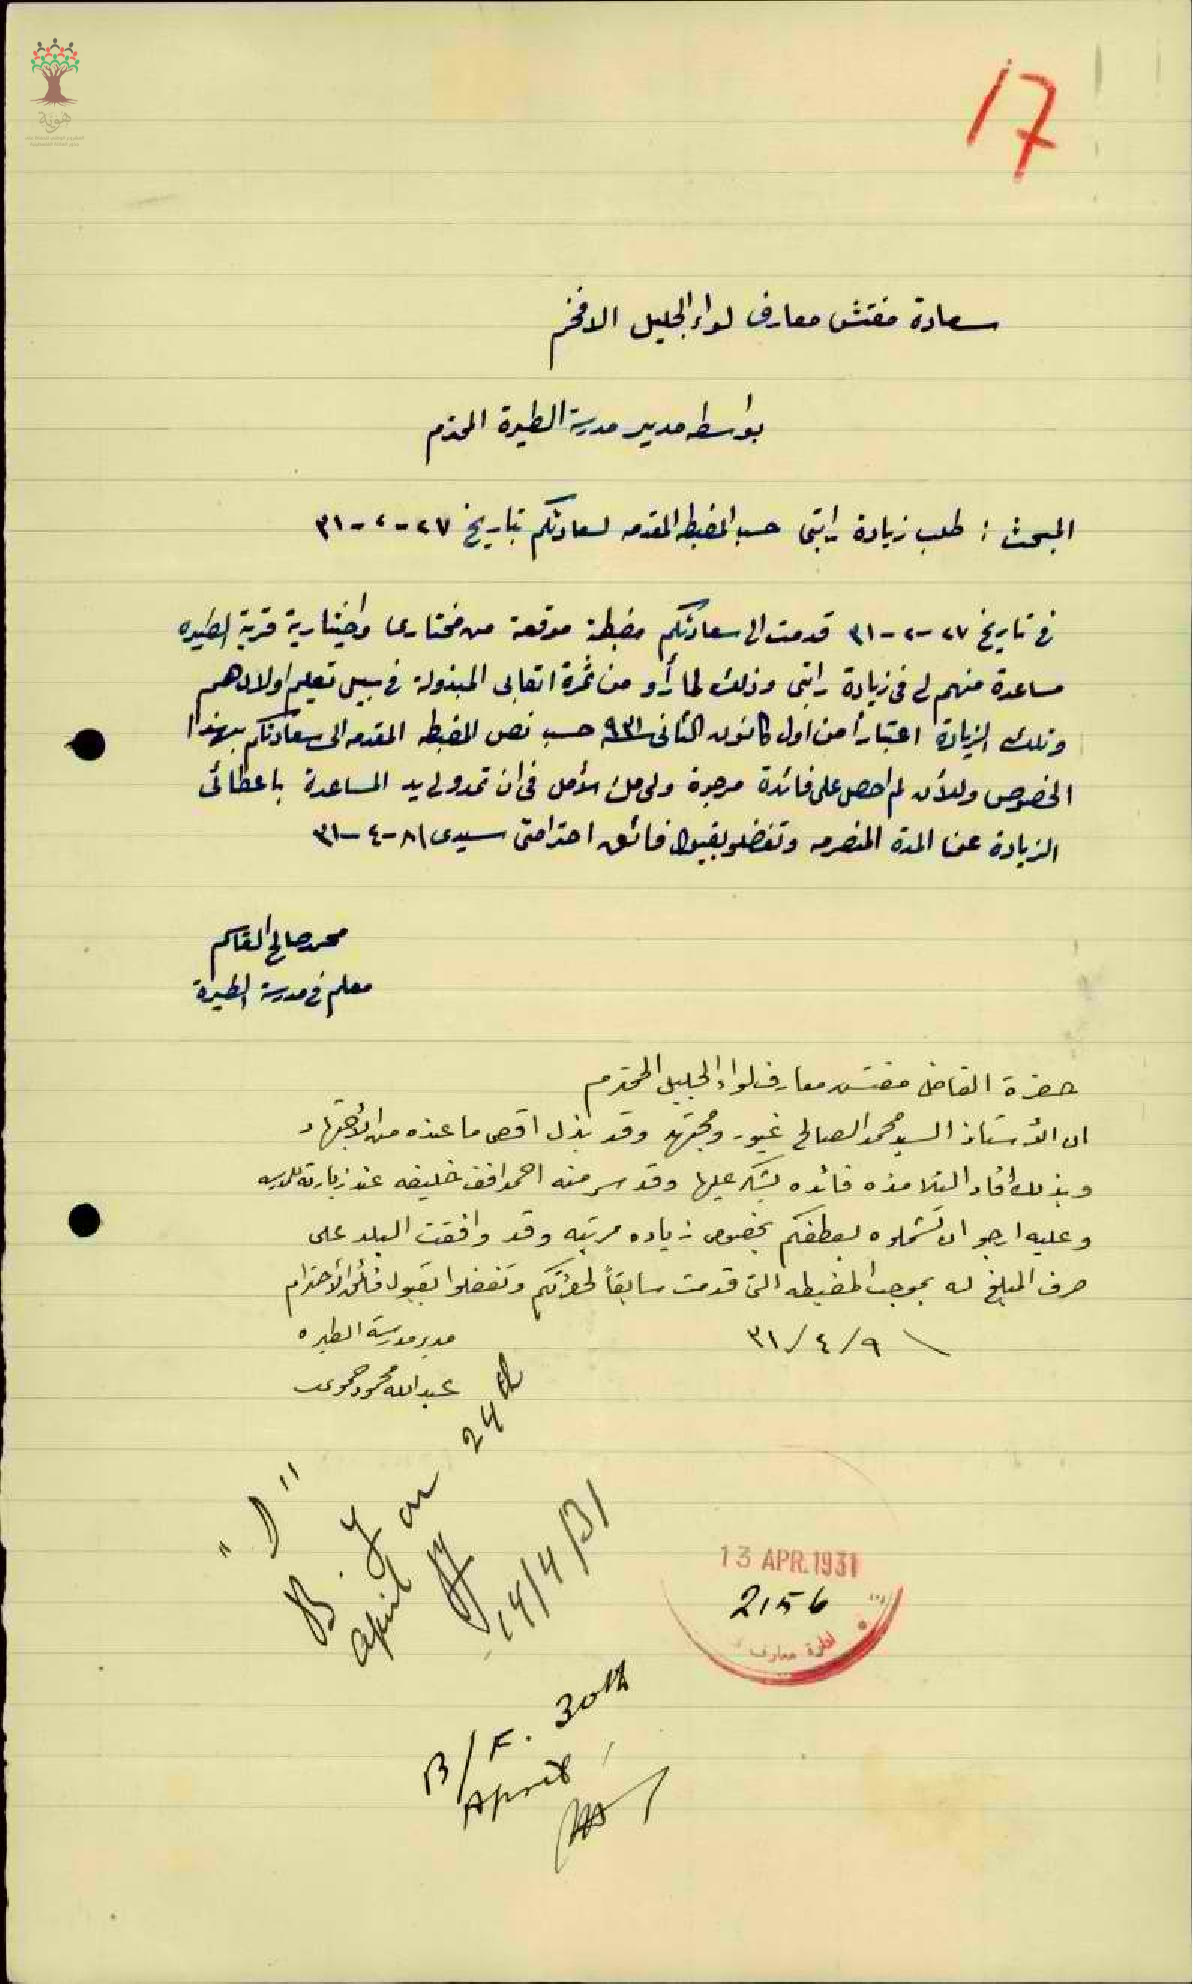 هوية
17
سعادة مفتش معارف لواء الجليل الافخم
بواسطة مدير مدرسة الطيرة المحترم
المبحث : طلب زيادة راتبي حسب المضبطه المقدمه لسعادتكم بتاريخ ٢٧-٢-٣١
في تاريخ ٢٧-٢-٣١ قدمت الى سعادتكم مضبطة موقعة من مختارى واختيارية قرية الطيره
مساعدة منهم لي في زيادة راتبي وذلك لما رأو من ثمرة اتعابي المبذولة في سبيل تعليم اولادهم
وتلك الزيادة اعتبارا من اول كانون الثاني ٩٣١ حسب نص المضبطه المقدمه الى سعادتكم بهذا
الخصوص وللأن لم احصل على فائدة مرجوة ولي ملئ الأمل في ان تمدو لي يد المساعدة باعطائي
الزيادة عن المدة المنصرمه وتفضلو بقبول فائق احترامتي سيدي ٨-٤-٣١
محمد صالح القاسم
معلم في مدرسة الطيرة
حضرة الفاضل مفتش معارف لواء الجليل المحترم
ان الأستاذ السيد محمد الصالح غيور ومجتهد وقد بذل اقصى ما عنده من الأجتهاد
وبذلك افاد التلامذه فائده يشكر عليها وقد سر منه احمد افندي خليفه عند زيارته للمدرسه
وعليه ارجو ان تشملوه بعطفكم بخصوص زياده مرتبه وقد وافقت البلد على
صرف المبلغ له بموجب المضبطه التي قدمت سابقاً لحضرتكم وتفضلوا بقبول فائق الأحترام
٣١/٤/٩
مدير مدرسة الطيره
عبدالله محمود
"D"
B.F on 24th
April
14/4/31
13 APR. 1931
2156
معارف
B/F. 30th
April